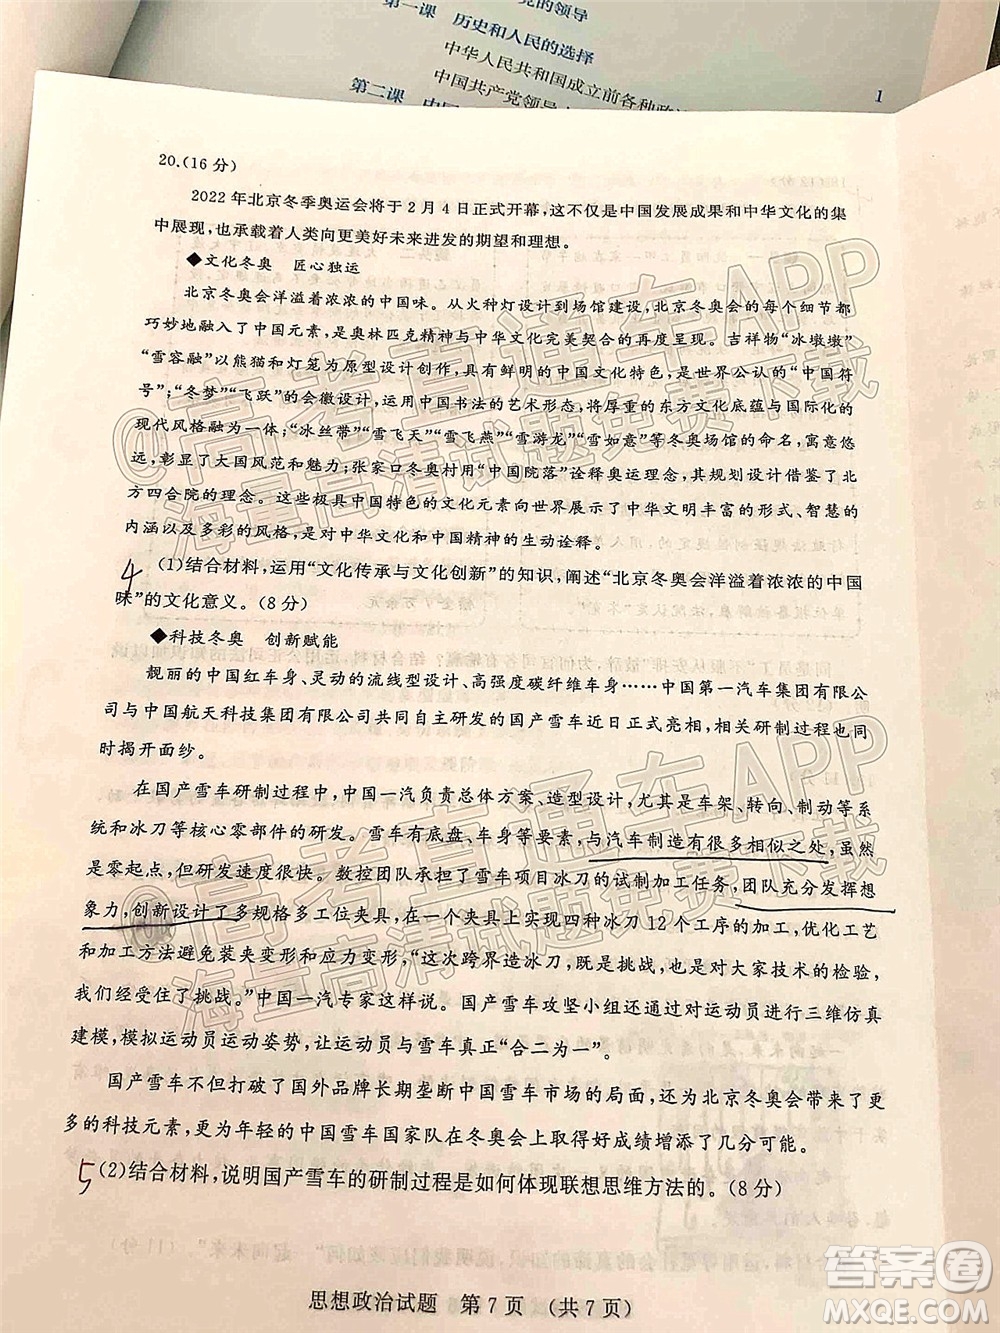 党的领导
第一课 历史和人民的选择
中华人民共和国成立前各种政
中国共产党领导
第二课
1
20.(16分)
2022年北京冬季奥运会将于2月4日正式开幕,这不仅是中国发展成果和中华文化的集
中展现,也承载着人类向更美好未来进发的期望和理想。
◆文化冬奥 匠心独运
北京冬奥会洋溢着浓浓的中国味。从火种灯设计到场馆建设,北京冬奥会的每个细节都
巧妙地融入了中国元素,是奥林匹克精神与中华文化完美契合的再度呈现。吉祥物“冰墩墩”
“雪容融”以熊猫和灯笼为原型设计创作,具有鲜明的中国文化特色,是世界公认的“中国符
号”;“冬梦”“飞跃”的会徽设计,运用中国书法的艺术形态,将厚重的东方文化底蕴与国际化的
现代风格融为一体;“冰丝带”“雪飞天”“雪飞燕”“雪游龙”“雪如意”等冬奥场馆的命名,寓意悠
远,彰显了大国风范和魅力;张家口冬奥村用“中国院落”诠释奥运理念,其规划设计借鉴了北
方四合院的理念。这些极具中国特色的文化元素向世界展示了中华文明丰富的形式、智慧的
内涵以及多彩的风格,是对中华文化和中国精神的生动诠释。
4 (1)结合材料,运用“文化传承与文化创新”的知识,阐述“北京冬奥会洋溢着浓浓的中国
味”的文化意义。(8分)
◆科技冬奥 创新赋能
靓丽的中国红车身、灵动的流线型设计、高强度碳纤维车身……中国第一汽车集团有限公
司与中国航天科技集团有限公司共同自主研发的国产雪车近日正式亮相,相关研制过程也同
时揭开面纱。
在国产雪车研制过程中,中国一汽负责总体方案、造型设计,尤其是车架、转向、制动等系
统和冰刀等核心零部件的研发。雪车有底盘、车身等要素,与汽车制造有很多相似之处,虽然
是零起点,但研发速度很快。数控团队承担了雪车项目冰刀的试制加工任务,团队充分发挥想
象力,创新设计了多规格多工位夹具,在一个夹具上实现四种冰刀12个工序的加工,优化工艺
和加工方法避免装夹变形和应力变形,“这次跨界造冰刀,既是挑战,也是对大家技术的检验,
我们经受住了挑战。”中国一汽专家这样说。国产雪车攻坚小组还通过对运动员进行三维仿真
建模,模拟运动员运动姿势,让运动员与雪车真正“合二为一”。
国产雪车不但打破了国外品牌长期垄断中国雪车市场的局面,还为北京冬奥会带来了更
多的科技元素,更为年轻的中国雪车国家队在冬奥会上取得好成绩增添了几分可能。
5 (2)结合材料,说明国产雪车的研制过程是如何体现联想思维方法的。(8分)
思想政治试题 第7页 (共7页)
@高考直通车APP
海量高清试题免费下载
@高考直通车APP
海量高清试题免费下载
答案圈
MXQE.COM